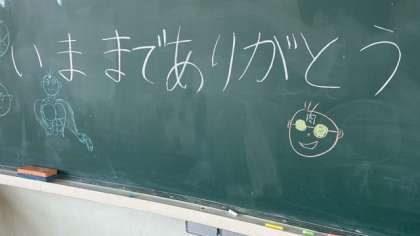 いままでありがとう